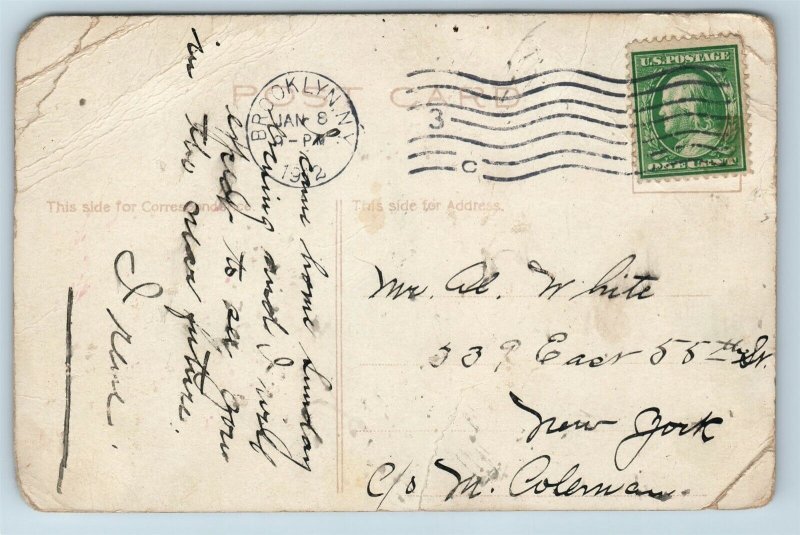 POST CARD
BROOKLYN, N.Y.
JAN 8
PM
1912
3
C
U.S. POSTAGE
This side for Correspondence.
This side for Address.
I came home Sunday
evning and I will
expec to see you
in the near future.
Irene.
Mr. Al. White
339 East 55th St.
New York
c/o M. Coleman